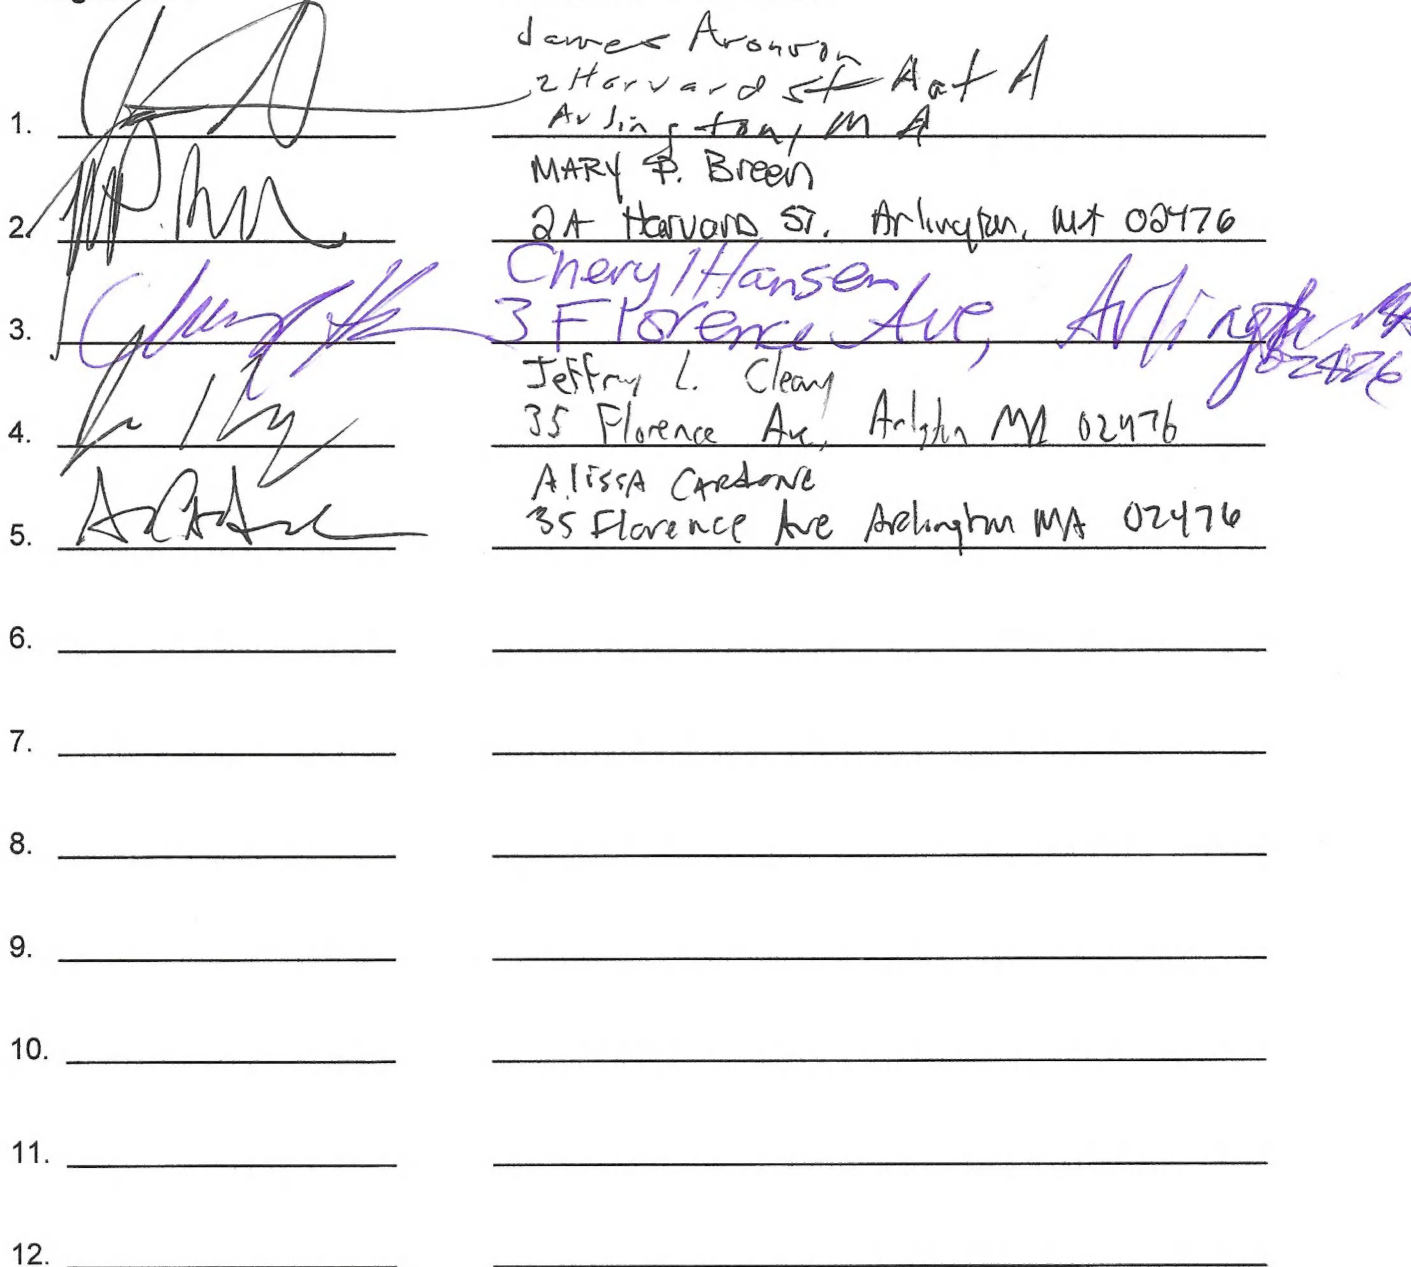 James Aronson
2 Harvard st Apt A
1. Arlington, MA
MARY P. Breen
2. 2A Harvard ST. Arlington, MA 02476
Cheryl Hansen
3. 3 Florence Ave, Arlington MA
02476
Jeffry L. Cleary
4. 35 Florence Ave, Arlgton MA 02476
AlissA CARdONe
5. 35 Florence Ave Arlington MA 02476
6.
7.
8.
9.
10.
11.
12.